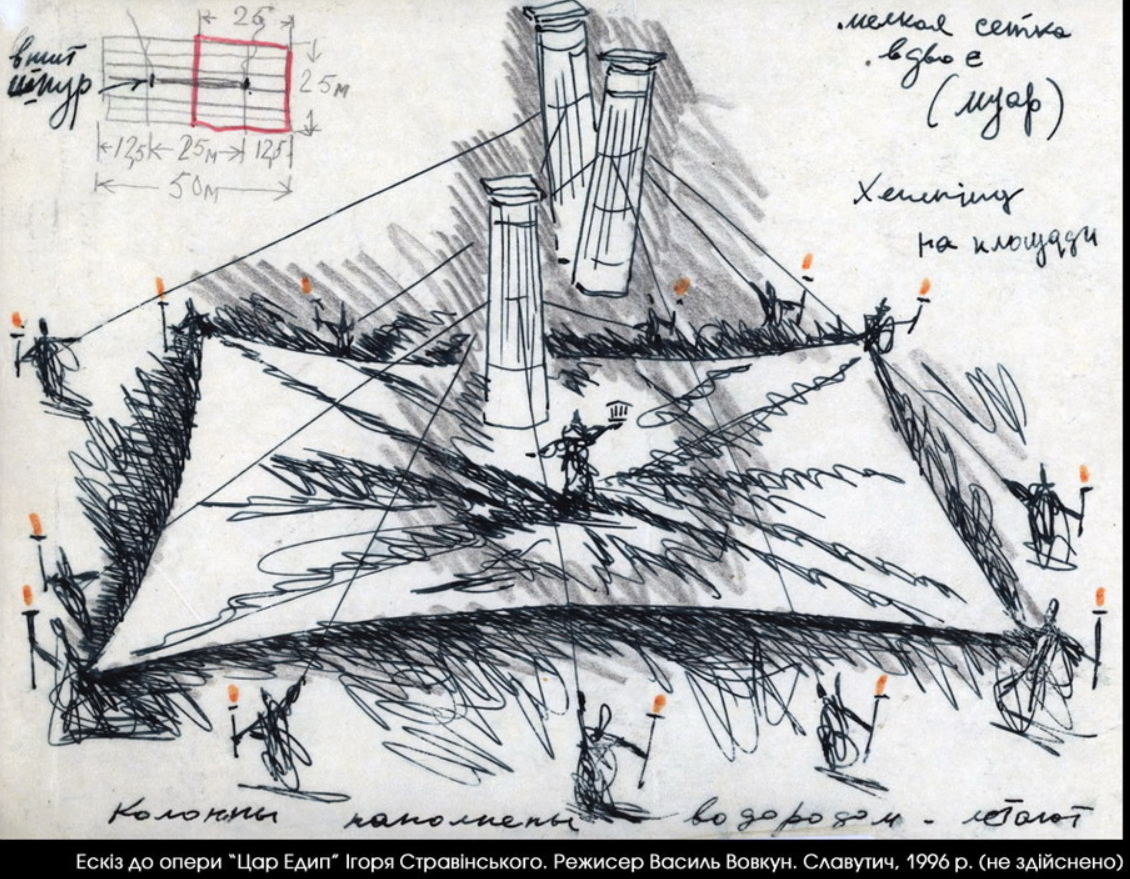 25
вшит
шнур
25м
12,5 25м 12,5
50м
мелкая сетка
вдвое
(муар)
Хеппінг
на площади
Колонны наполнены водородом - летают
Ескіз до опери “Цар Едип” Ігоря Стравінського. Режисер Василь Вовкун. Славутич, 1996 р. (не здійснено)